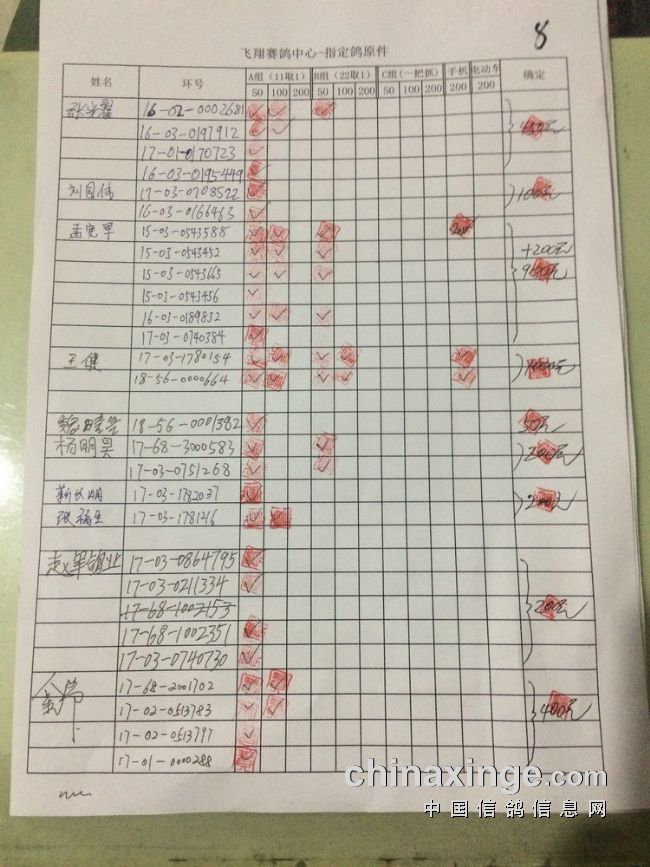 8
飞翔赛鸽中心-指定鸽原件
姓名 环号 A组（11取1） B组（22取1） C组（一把抓） 手机 电动车 确定
50 100 200 50 100 200 50 100 200 200 200
16-02-0002681 ✓ ✓ ✓
16-03-0197912 ✓ ✓ 450元
17-01-0170723 ✓
16-03-0195449 ✓
刘国伟 17-03-0708522 ✓ 100元
16-03-0166463 ✓
孟宪军 15-03-0543588 ✓ ✓ ✓ 200
15-03-0543452 ✓ ✓ ✓ +200元
15-03-0543665 ✓ ✓ ✓ 900元
15-03-0543456 ✓
16-03-0189832 ✓ ✓ ✓
17-03-0740384 ✓
王健 17-03-1780154 ✓ ✓ ✓ ✓ ✓ 1000元
18-56-0000664 ✓ ✓ ✓ ✓ ✓
18-56-0001382 ✓ 50元
杨明昊 17-68-3000583 ✓ ✓ 200元
17-03-0751268 ✓ ✓
17-03-1782037 ✓ 200元
张福生 17-03-1781216 ✓ ✓
17-03-0864795 ✓
17-03-0211334 ✓
17-68-1002153 200元
17-68-1002351 ✓
17-03-0740730 ✓
17-68-2001702 ✓ ✓
17-02-0513783 ✓ ✓ 400元
17-02-0513797 ✓
17-01-0000288 ✓
chinaxinge.com
中国信鸽信息网